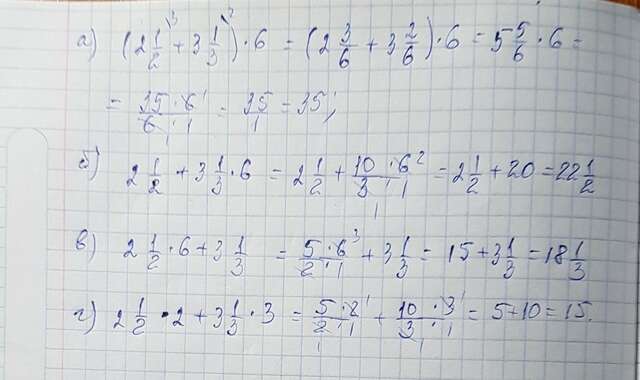 а) (2 1/2 + 3 1/3) · 6 = (2 3/6 + 3 2/6) · 6 = 5 5/6 · 6 =
= 35·6/6·1 = 35/1 = 35;
б) 2 1/2 + 3 1/3 · 6 = 2 1/2 + 10·6/3·1 = 2 1/2 + 20 = 22 1/2
в) 2 1/2 · 6 + 3 1/3 = 5·6/2·1 + 3 1/3 = 15 + 3 1/3 = 18 1/3
г) 2 1/2 · 2 + 3 1/3 · 3 = 5·2/2·1 + 10·3/3·1 = 5 + 10 = 15.